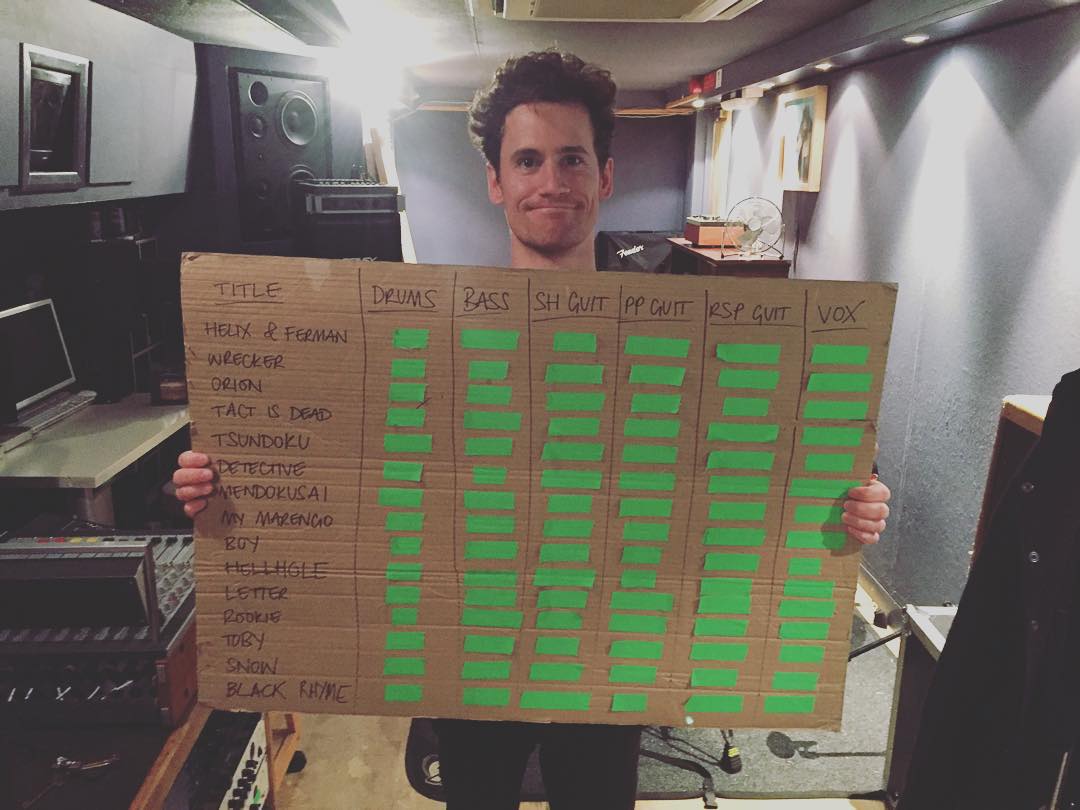 Fender
TITLE DRUMS BASS SH GUIT PP GUIT RSP GUIT VOX
HELIX & FERMAN
WRECKER
ORION
TACT IS DEAD
TSUNDOKU
DETECTIVE
MENDOKUSAI
MY MARENGO
BOY
HELLHOLE
LETTER
ROOKIE
TOBY
SNOW
BLACK RHYME